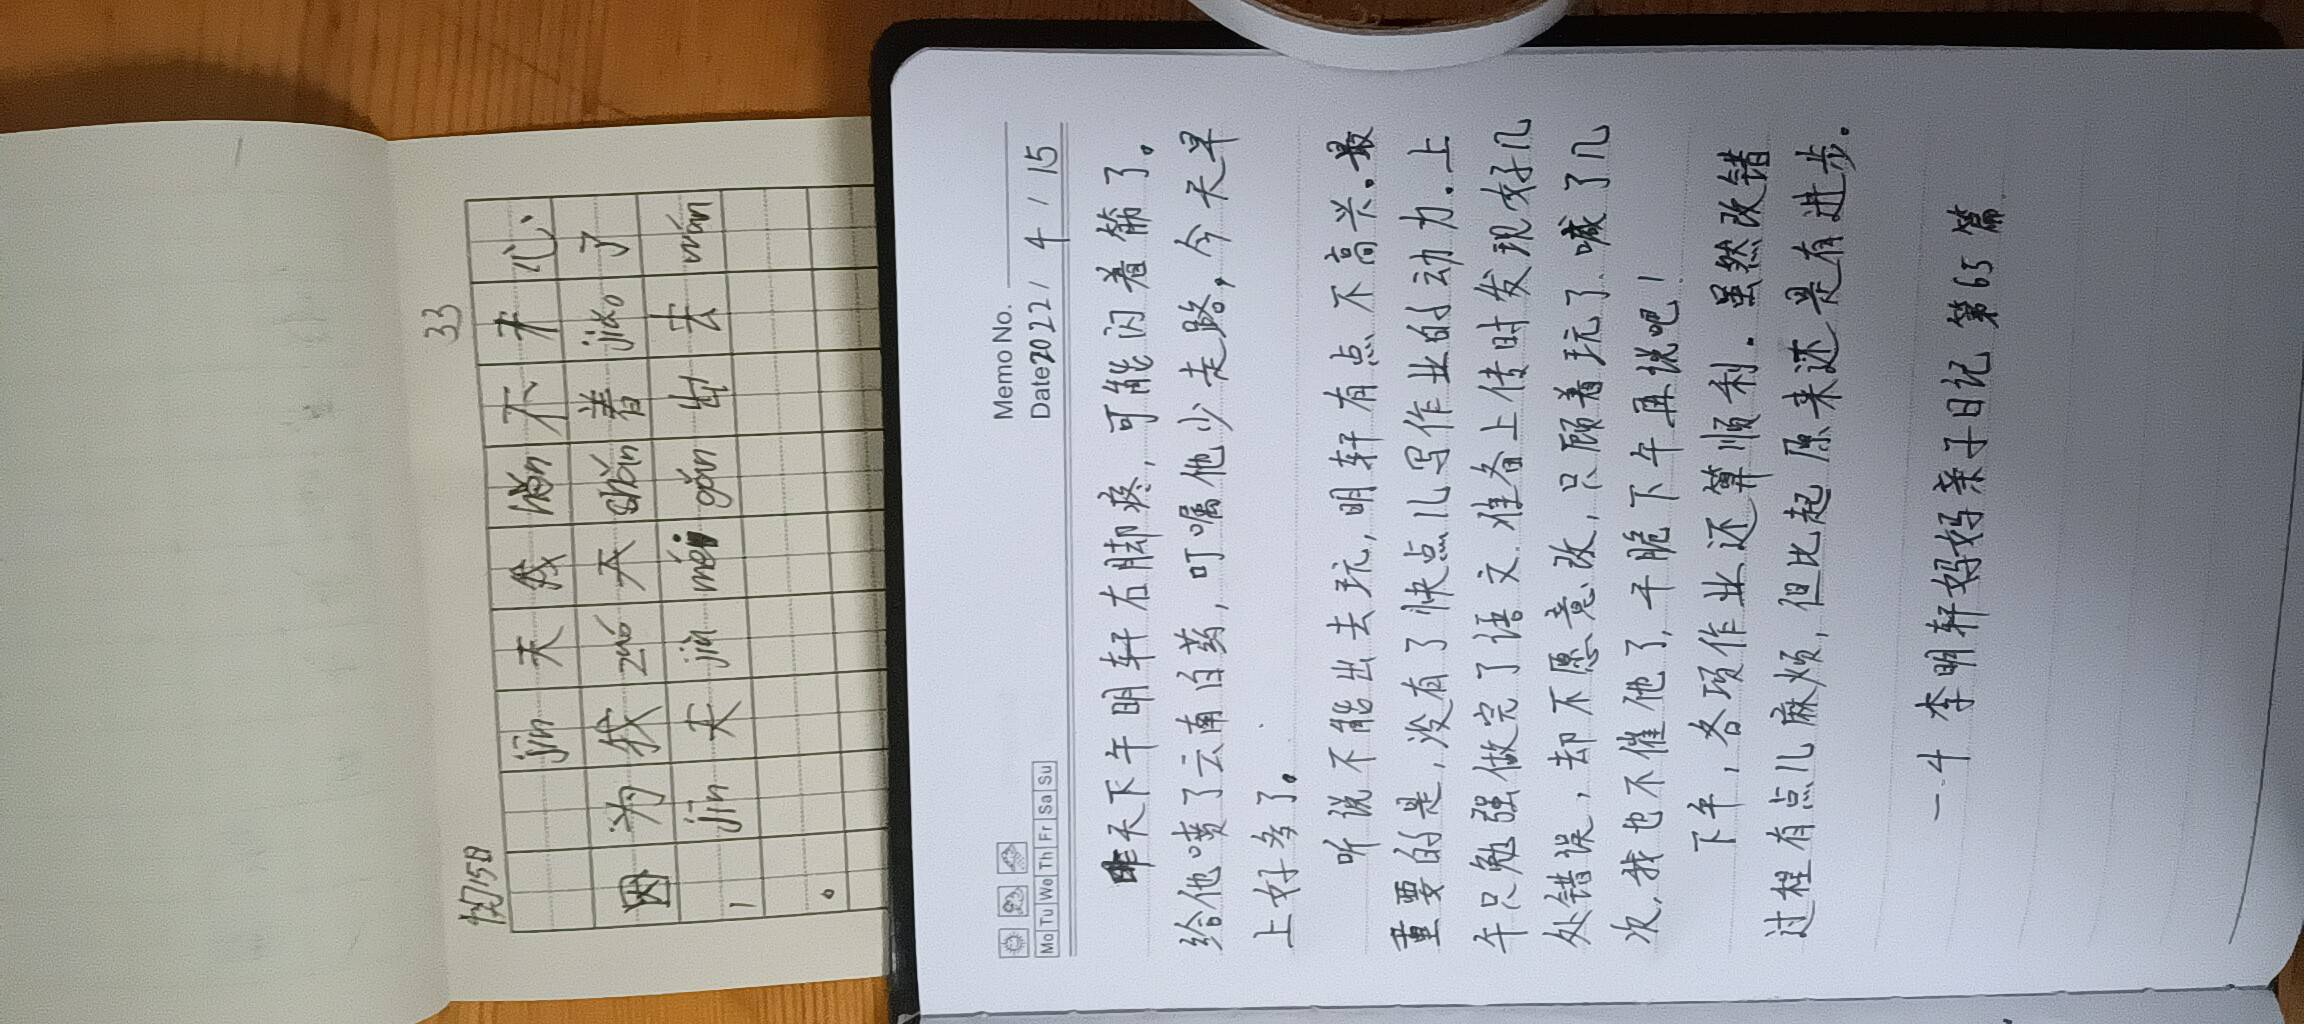 33
4月15日
jīn天我hěn不开心
因为我zuó天shǎn着jiǎo了
,jīn天jiù méi gǎn出去wán
。
Memo No.
Mo Tu We Th Fr Sa Su Date 2022 / 4 / 15
昨天下午明轩右脚疼,可能闪着筋了。
给他喷了云南白药,叮嘱他少走路,今天早
上好多了。
听说不能出去玩,明轩有点不高兴.最
重要的是,没有了快点儿写作业的动力.上
午只勉强做完了语文.准备上传时发现好几
处错误,却不愿意改,只顾着玩了.喊了几
次,我也不催他了,干脆下午再说吧!
下午,各项作业还算顺利.虽然改错
过程有点儿麻烦,但比起原来还是有进步.
一.4 李明轩妈妈亲子日记 第65篇